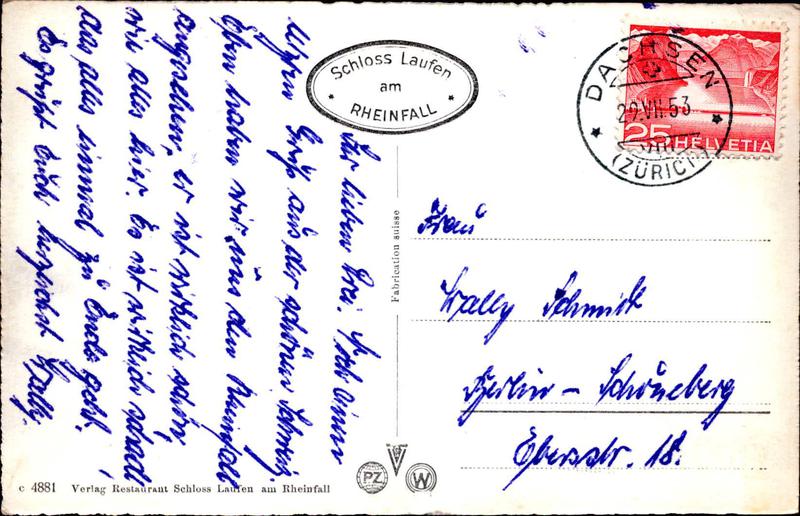 Schloss Laufen
am
* RHEINFALL *
DACHSEN
29.VII.53
(ZÜRICH)
25
HELVETIA
Ihr lieben Drei! Noch einen
Gruß aus der schönen Schweiz.
Eben haben wir uns den Rheinfall
angesehen, er ist wirklich schön,
wie alles hier. Es ist wirklich schade
das alles einmal zu Ende geht.
Es grüßt Euch herzlichst Wally.
Fabrication suisse
Frau
Wally Schmidt
Berlin – Schöneberg
Ebersstr. 18.
PZ
W
c 4881 Verlag Restaurant Schloss Laufen am Rheinfall